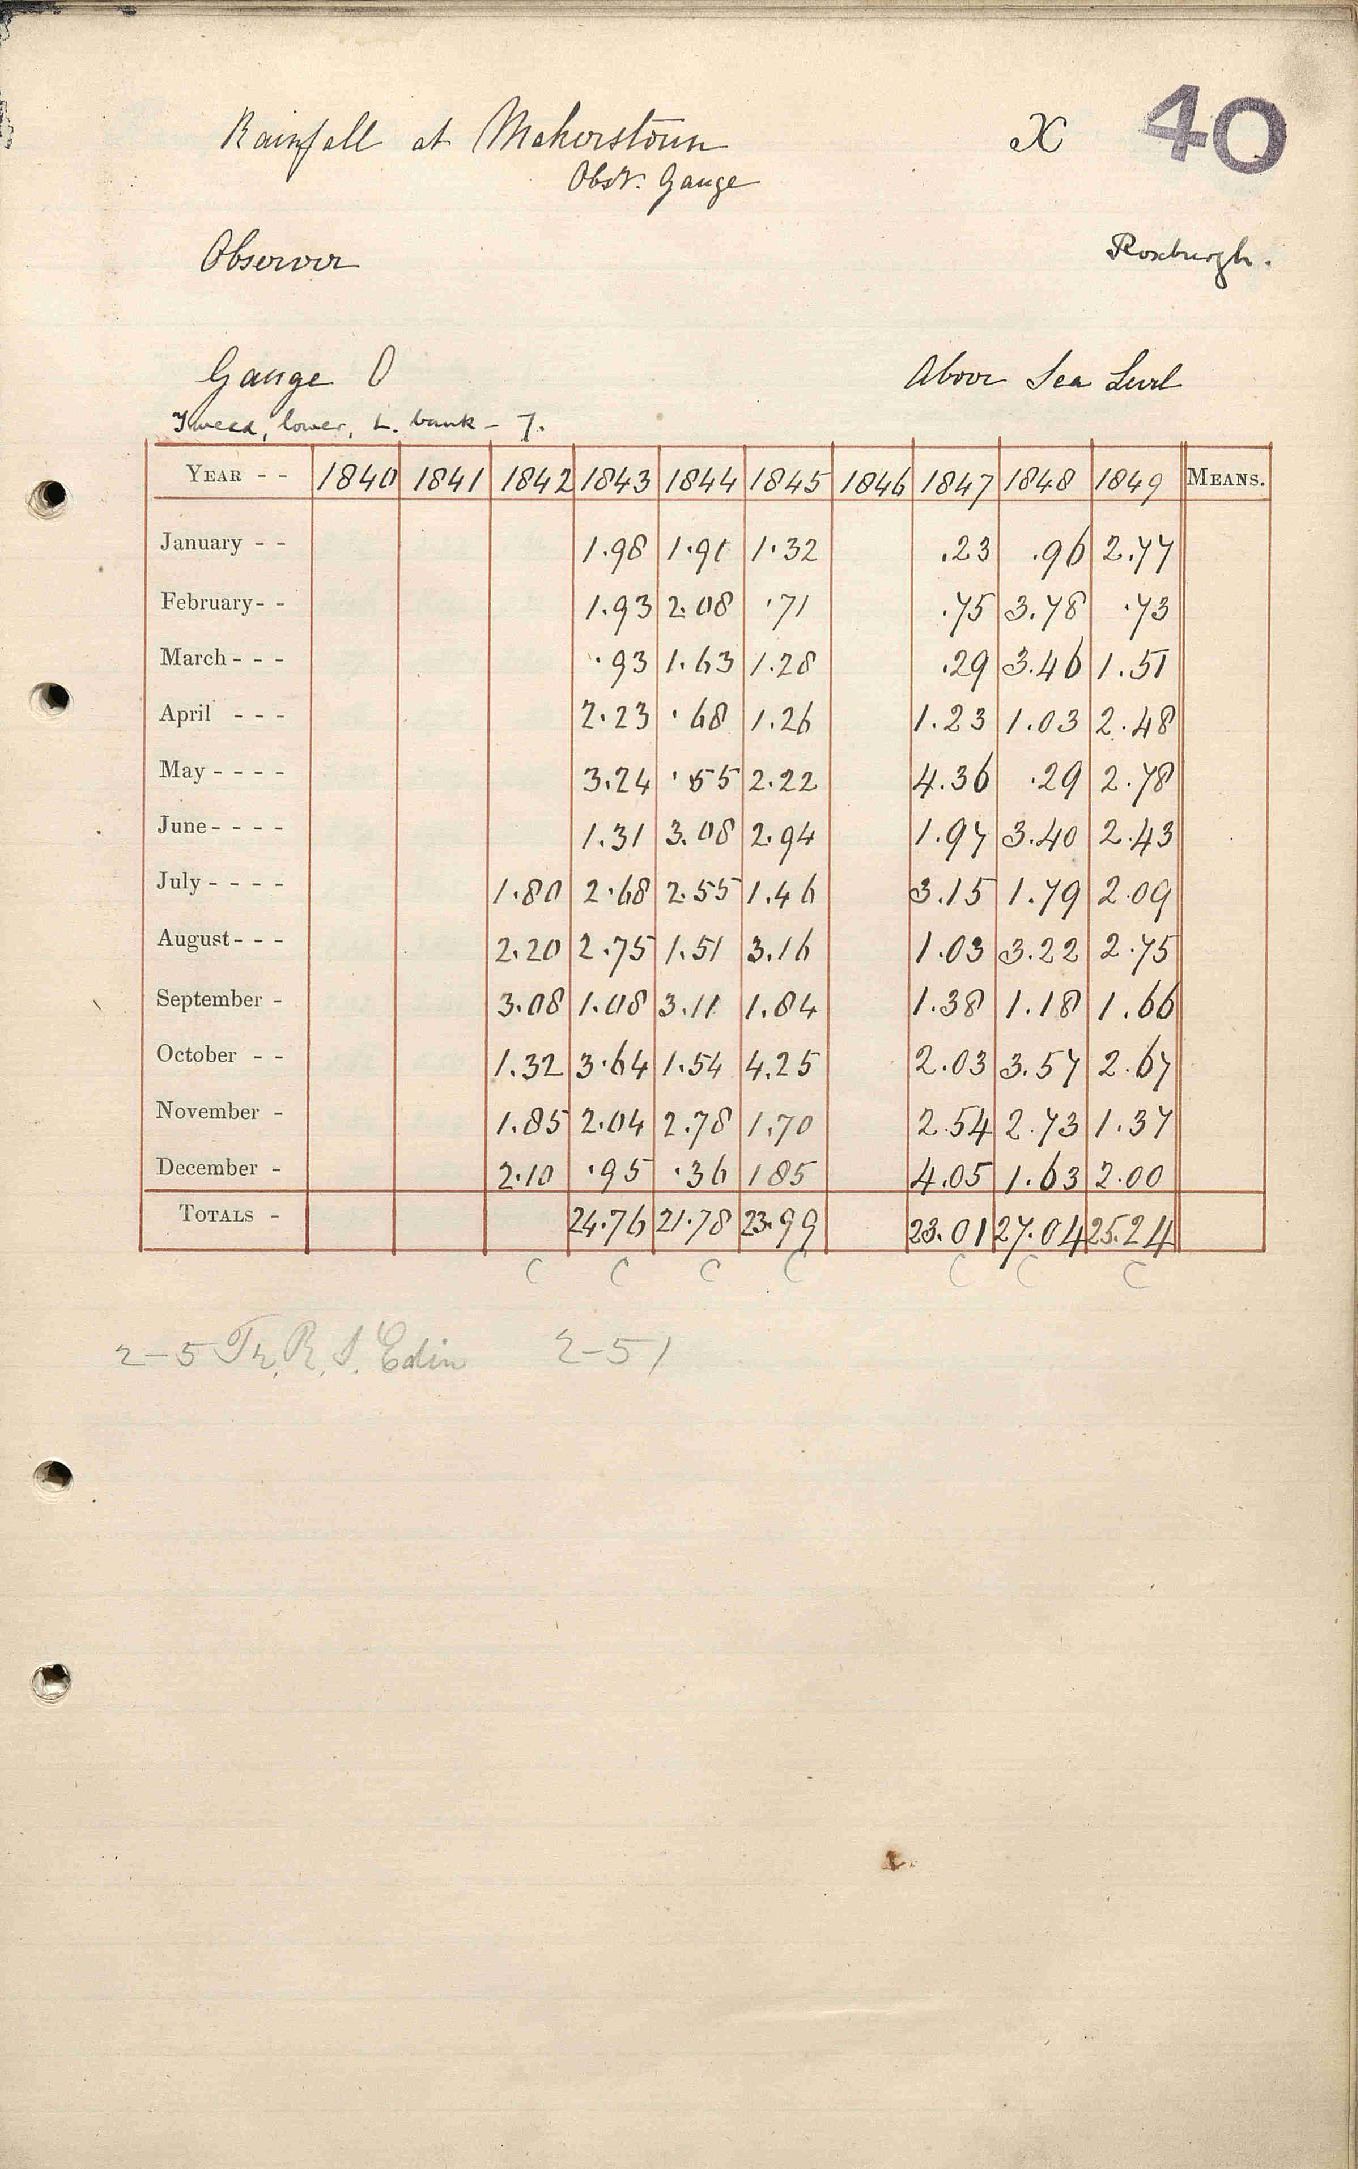 Rainfall at Makerstoun X 40
Obsy. Gauge
Observer Roxburgh.
Gauge 0 Above Sea Level
Tweed, lower, L. bank - 7.
YEAR - - 1840 1841 1842 1843 1844 1845 1846 1847 1848 1849 MEANS.
January - - 1.98 1.91 1.32 .23 .96 2.77
February - - 1.93 2.08 .71 .75 3.78 .73
March - - - .93 1.63 1.28 .29 3.46 1.51
April - - - 2.23 .68 1.26 1.23 1.03 2.48
May - - - - 3.24 .55 2.22 4.36 .29 2.78
June - - - - 1.31 3.08 2.94 1.97 3.40 2.43
July - - - - 1.80 2.68 2.55 1.46 3.15 1.79 2.09
August - - - 2.20 2.75 1.51 3.16 1.03 3.22 2.75
September - 3.08 1.08 3.11 1.84 1.38 1.18 1.66
October - - 1.32 3.64 1.54 4.25 2.03 3.57 2.67
November - 1.85 2.04 2.78 1.70 2.54 2.73 1.37
December - 2.10 .95 .36 1 85 4.05 1.63 2.00
TOTALS - 24.76 21.78 23.99 23.01 27.04 25.24
C C C C C C C
2-5 Tr. R. S. Edin 2-51